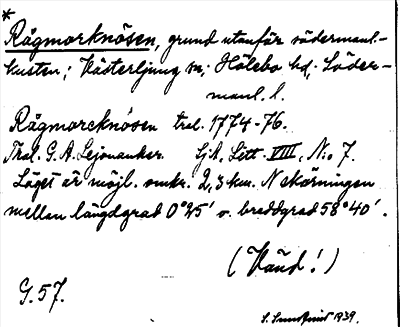 *
Rågmorknösen, grund utanför södermanl.-
kusten; Västerljung sn; Hölebo hd. Söder-
manl. l.
Rågmorcknösen tral. 1774-76.
Thal. G. A. Lejonanker. Sjk. Litt. VIII, No 7.
Läget är möjl. omkr. 2,3 km. N skärningen
mellan längdgrad 0°25' o. breddgrad 58°40'.
(Vänd!)
G. 57.
S. Sundqvist 1939.